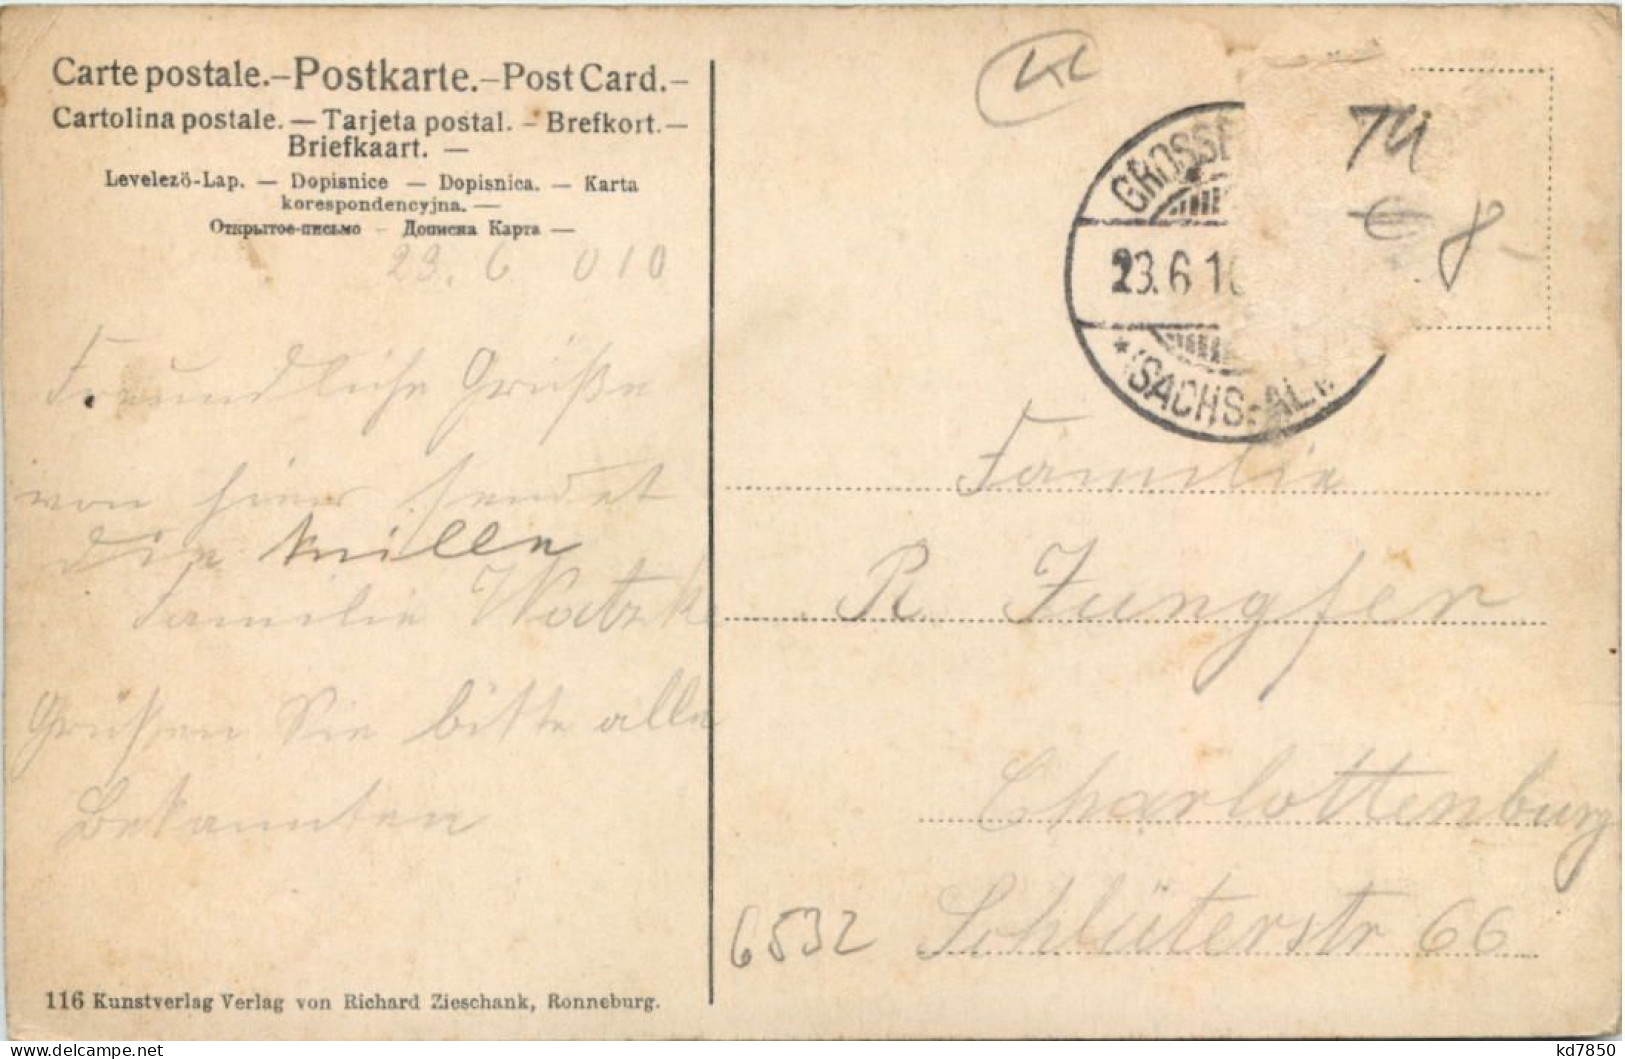 Carte postale.–Postkarte.–Post Card.–
Cartolina postale. — Tarjeta postal. – Brefkort.—
Briefkaart. —
Levelező-Lap. — Dopisnice — Dopisnica. — Karta
korespondencyjna. —
Открытое письмо – Дописна Карта —
23. 6 010
Freundliche Grüße
von hier sendet
die
Familie Watzke
Grüßen Sie bitte alle
Bekannten
116 Kunstverlag Verlag von Richard Zieschank, Ronneburg.
GROSSE
23.6.10
* (SACHS.-ALT.
8-
Familie
R. Jungfer
Charlottenburg
Schlüterstr 66
6532
kd7850